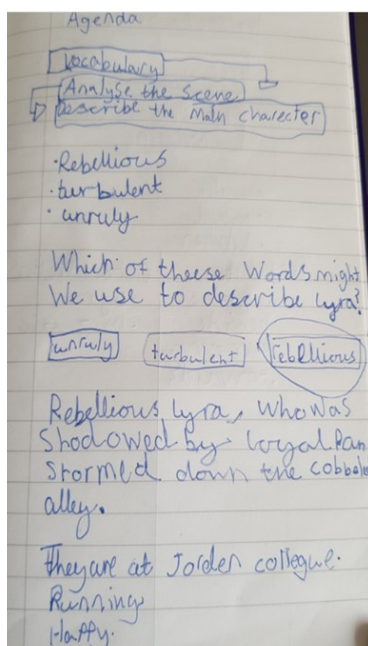 Agenda
Vocabulary
Analyse the scene
Describe the main charecter
·Rebellious
·turbulent
·unruly
Which of theese words might
We use to describe lyra?
unruly turbulent rebellious
Rebellious lyra, who was
Shadowed by loyal Pan
Stormed down the cobbole
alley.
They are at Jorden collegue.
Running
Happy.